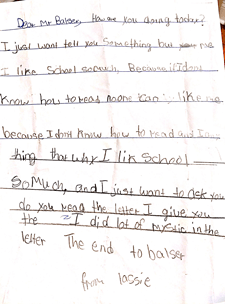 Dear Mr Balser, How are you doing today?
I just want tell you something but me
I like School so much, Because if I dont
Know how to read more can like me
because I dont Know how to read and
thing that why I lik School
So Much, and I just want to ask you
do you read the letter I give you
the I did lot of mystic in the
letter The end to balser
from lassie